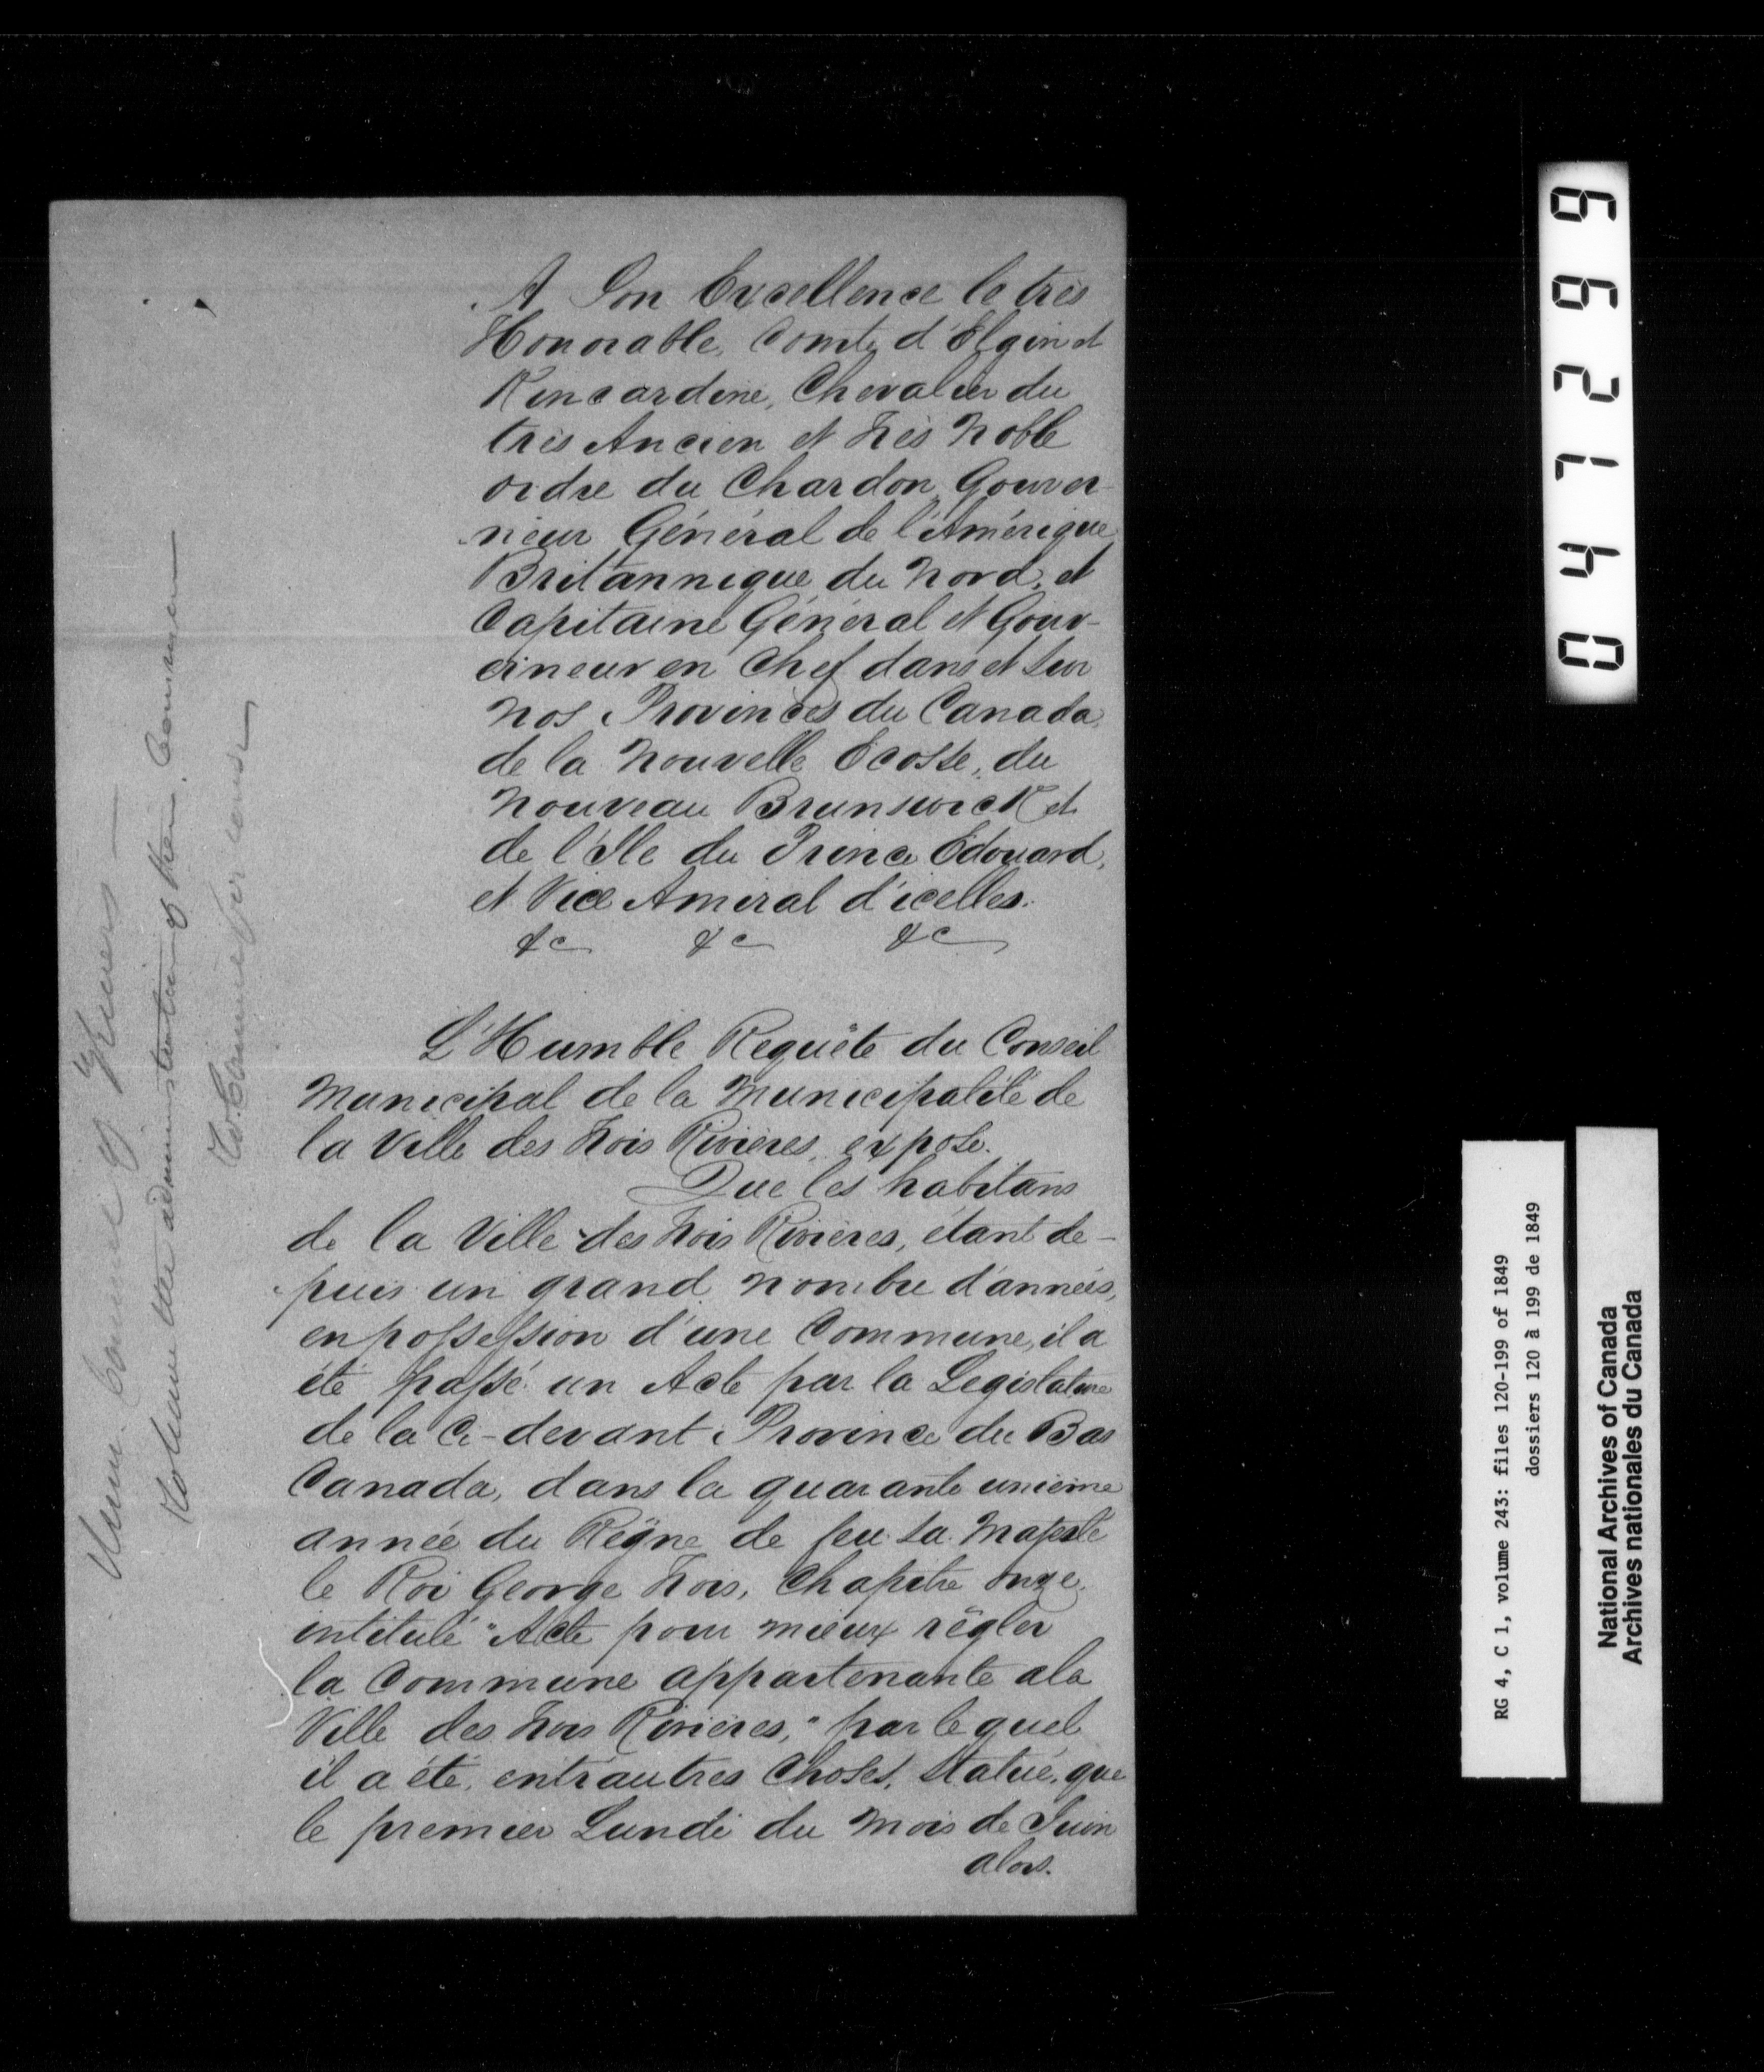 A Son Excellence le très
Honorable, Comte d'Elgin et
Kincardine, Chevalier du
très Ancien et très Noble
ordre du Chardon, Gouver
neur Général de l'Amérique
Britannique du Nord, et
Capitaine Général et Gouv-
erneur en Chef dans et sur
nos Provinces du Canada,
de la Nouvelle Ecosse, du
Nouveau Brunswick et
de l'Ile du Prince Edouard,
et Vice Amiral d'icelles.
&c &c &c
L'Humble Requête du Conseil
Municipal de la Municipalité de
la Ville des trois Rivières, expose.
Que les habitans
de la Ville des trois Rivières, étant de-
puis un grand nombre d'années,
en possession d'une Commune, il a
été passé un Acte par la Legislature
de la Ci-devant Province du Bas
Canada, dans la quarante unieme
année du Règne de feu Sa Majesté
le Roi George trois, Chapitre onze,
intitulé "Acte pour mieux règler
la Commune appartenante a la
Ville des trois Rivières," par lequel
il a été, entr'autres choses, Statué, que
le premier Lundi du mois de Juin
alors.
Mun. Council of 3 Rivers
administration of their Commune
047299
RG 4, C 1, volume 243: files 120-199 of 1849
dossiers 120 à 199 de 1849
National Archives of Canada
Archives nationales du Canada